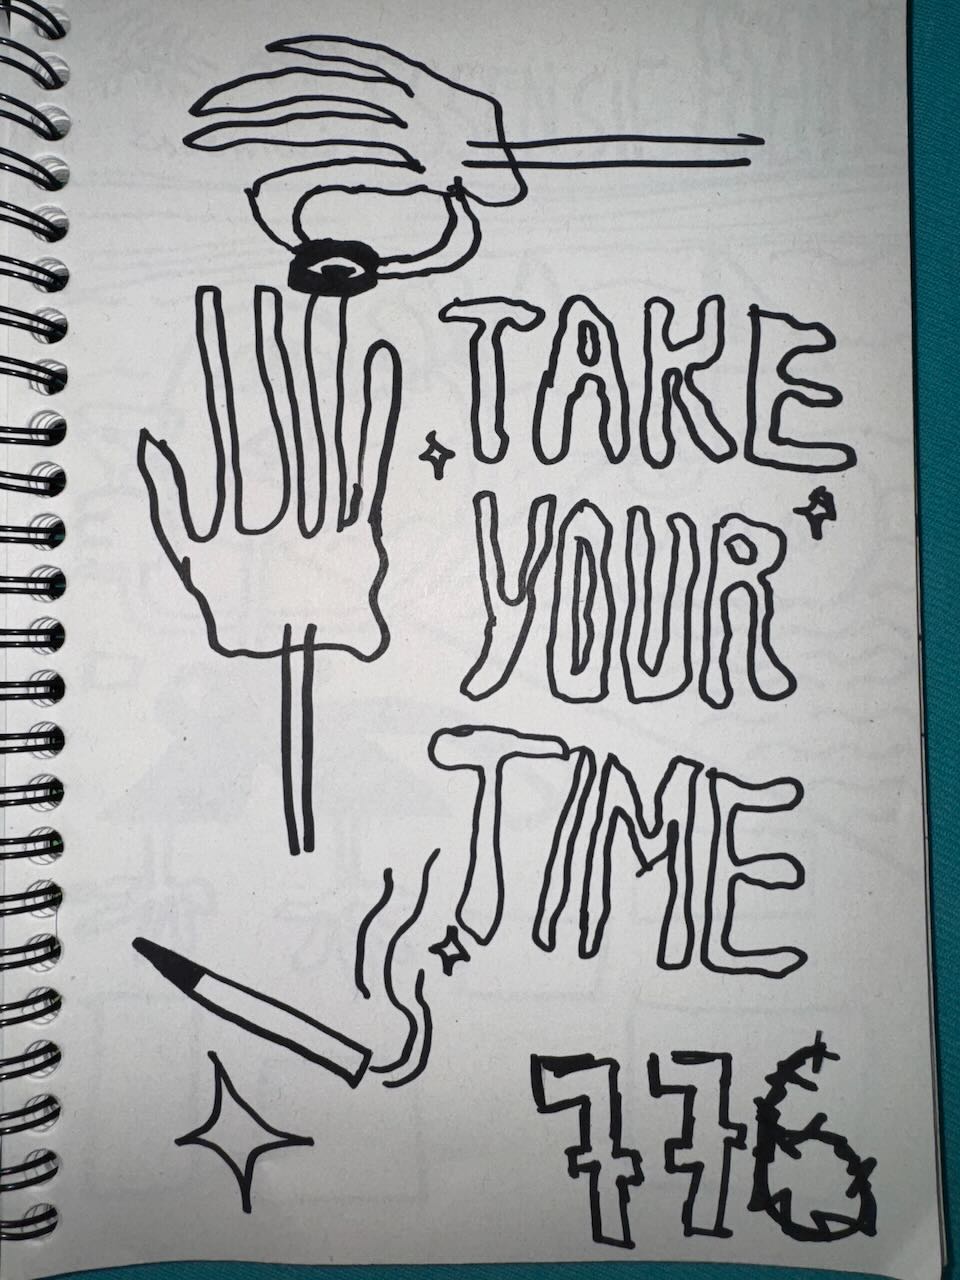 TAKE
YOUR
TIME
776